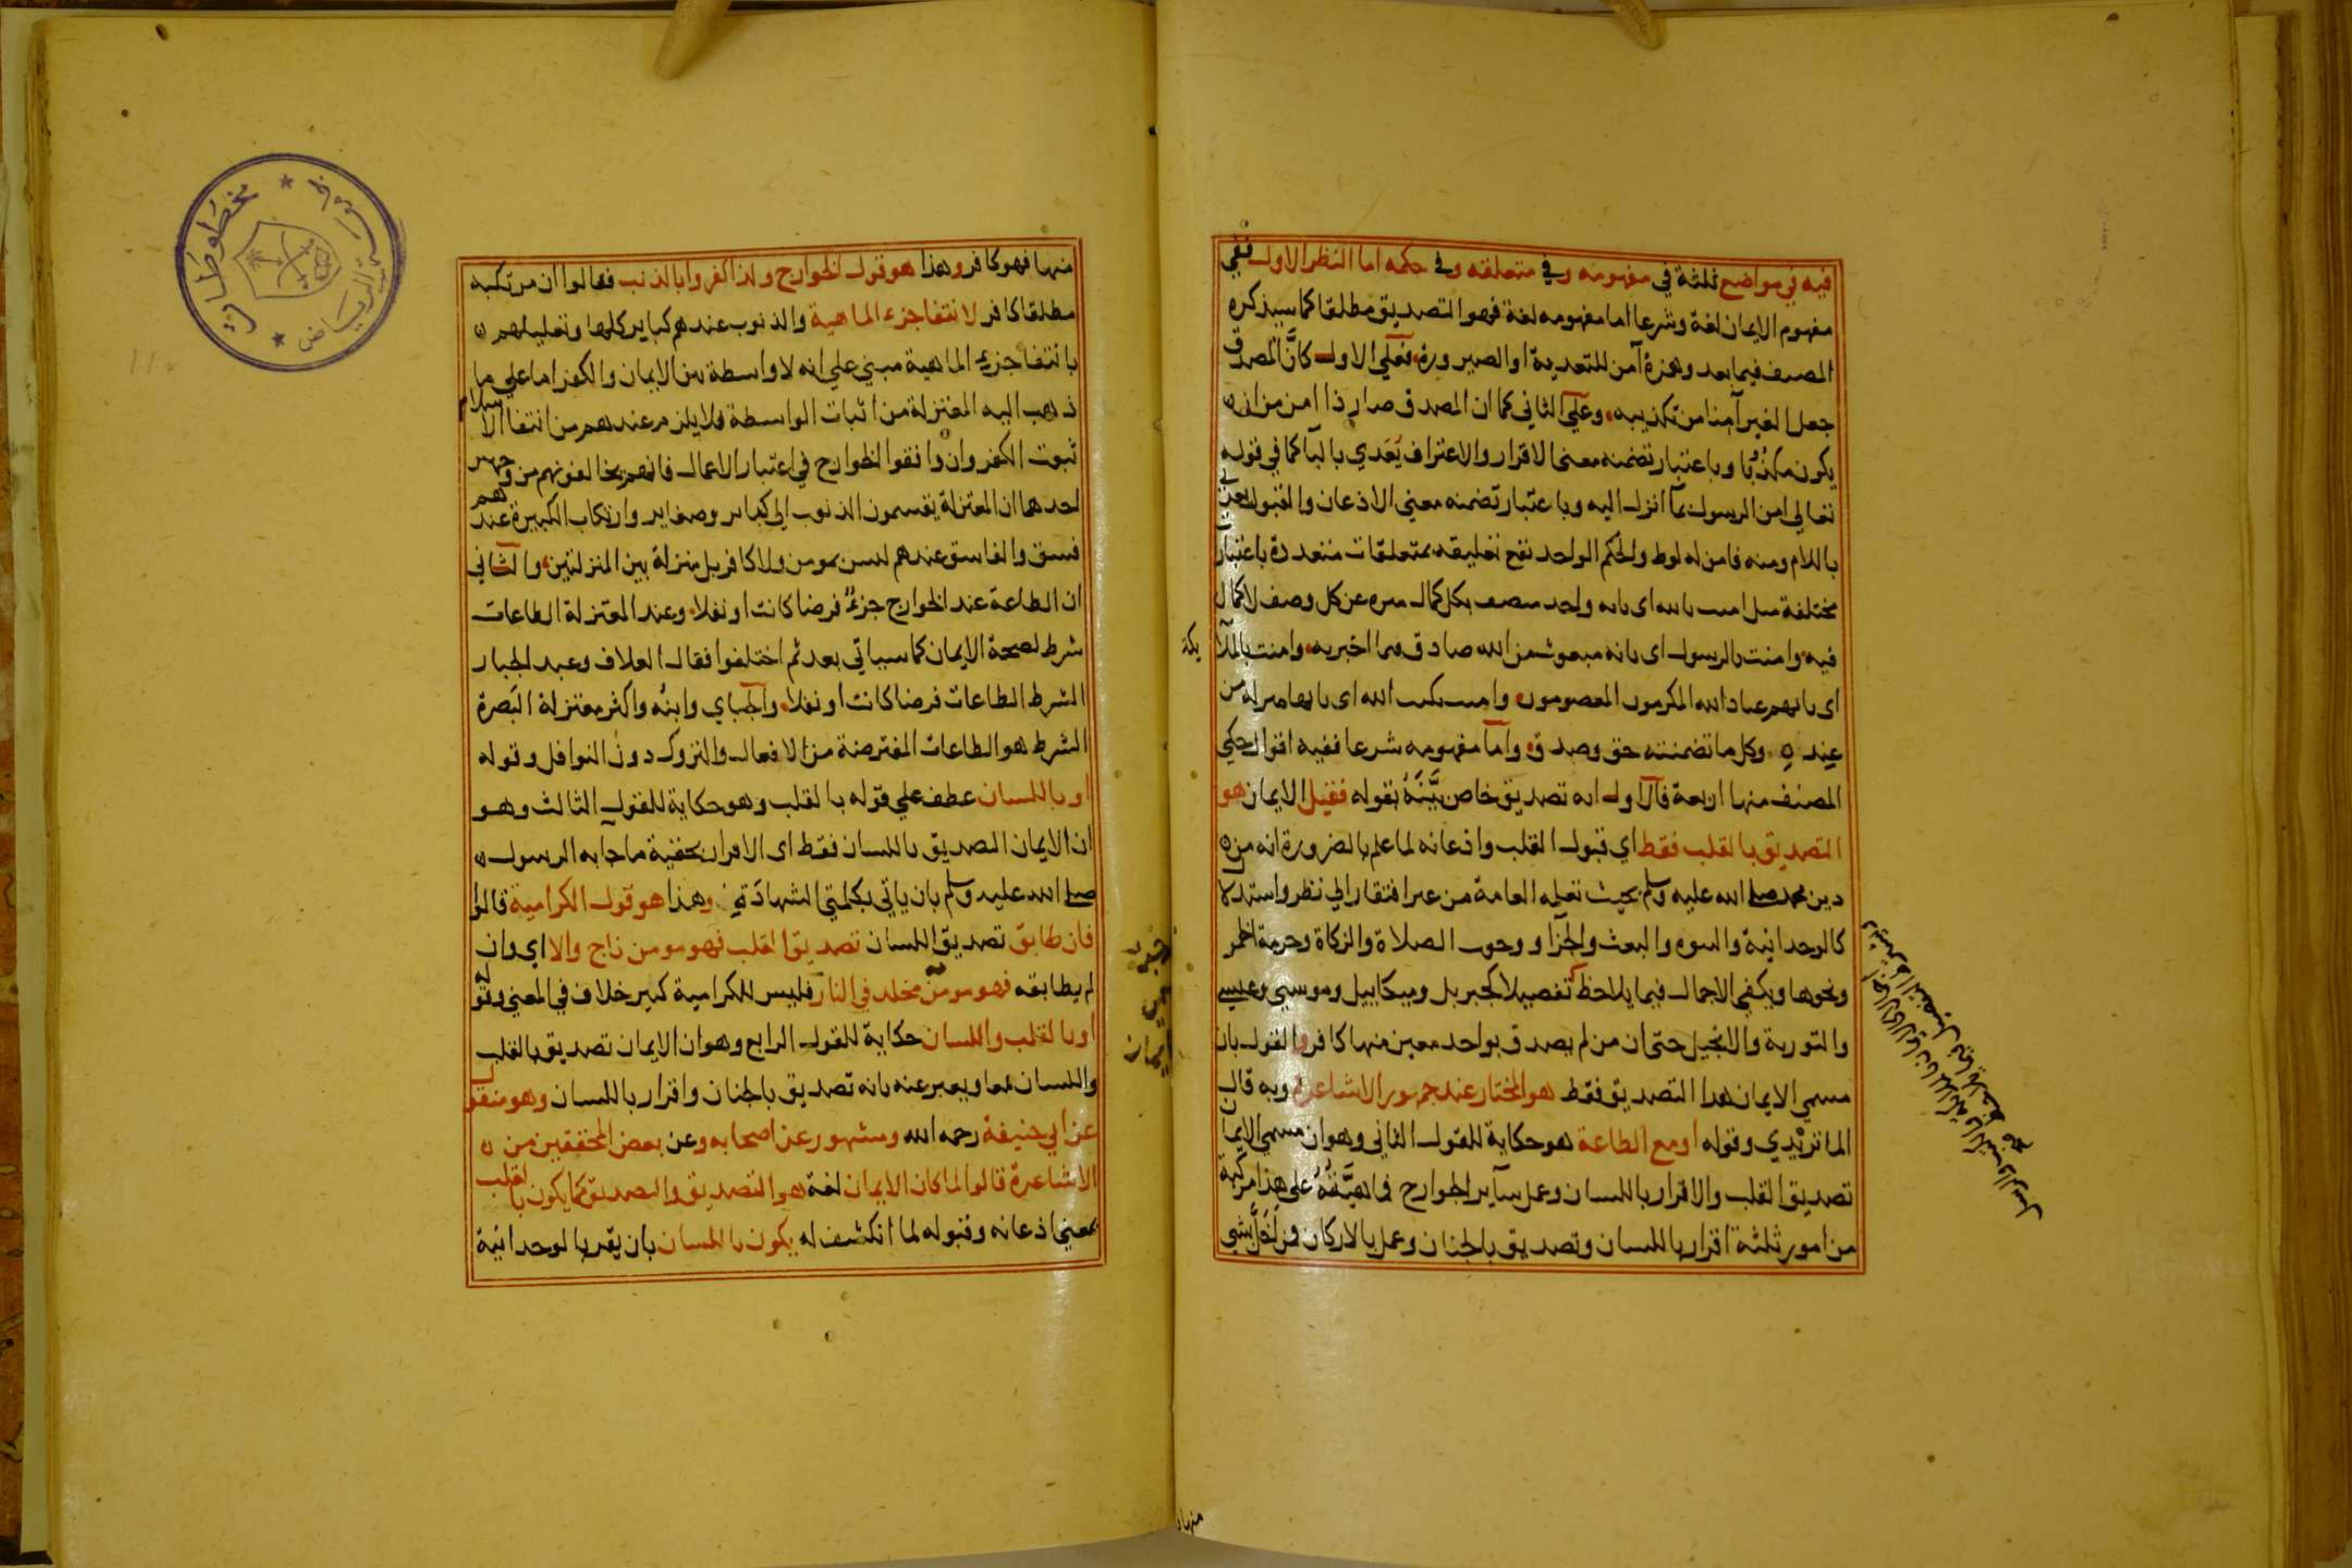 فيه في مواضع ثلثة في مفهومه وفي متعلقه وفي حكمه اما النظر الاول ففي
مفهوم الايمان لغة وشرعا اما مفهومه لغة فهو التصديق مطلقا كما سيذكره
المصنف فيما بعد وهمزة آمن للتعدية او الصيرورة فعلى الاول كانَّ المصدق
جعل الغير آمنا من تكذيبه وعلى الثاني كما ان المصدق صار ذا امن من ان
يكون مكذوبا وباعتبار تضمنه معنى الاقرار والاعتراف يُعَدي بالبا كما في قوله
تعالى امن الرسول بما انزل اليه وباعتبار تضمنه معنى الاذعان والقبول يعدى
باللام ومنه فامن له لوط والحكم الواحد تقع تعليقه بمتعلقات متعددة باعتبار
مختلفة مثل امنت بالله اى بانه واحد متصف بكل كمال منزه عن كل وصف لا كمال
فيه وامنت بالرسول اى بانه مبعوث من الله صادق فيما اخبر به وامنت بالملا
ئكة
اى بانهم عباد الله المكرمون المعصومون وامنت بكتب الله اى بانها منزلة من
عنده وكل ما تضمنته حق وصدق واما مفهومه شرعا ففيه اقوال حكى
المصنف منها اربعة فالاول انه تصديق خاص بيَّنَهُ بقوله فقيل الايمان هو
التصديق بالقلب فقط اي قبول القلب واذعانه لما علم بالضرورة انه من
دين محمد صلى الله عليه وسلم بحيث تعلمه العامة من غير افتقار الى نظر واستدلال
كالوحدانية والنبوه والبعث والجزا ووجوب الصلاة والزكاة وحرمة الخمر
ونحوها ويكفي الاجمال فيما يلاحظ تفصيلا كجبريل وميكاييل وموسى وعيسى
والتورية والانجيل حتى ان من لم يصدق بواحد معين منها كافر والقول بان
مسمى الايمان هذا التصديق فقط هو المختار عند جمهور الاشاعرة وبه قال
الماتريدي وقوله او مع الطاعة هو حكاية للقول الثاني وهو ان مسمى الايمان
تصديق القلب والاقرار باللسان وعمل ساير الجوارح فماهيَّتُهُ على هذا مركبة
من امور ثلثة اقرار باللسان وتصديق بالجنان وعمل بالاركان فمن اخَلَّ بشي
منها
منها فهو كافر وهذا هو قول الخوارج ولذا كفروا بالذنب فقالوا ان مرتكبه
مطلقا كافر لانتفا جزء الماهية والذنوب عندهم كباير كلها وتعليلهم
بانتفا جزء الماهية مبني على انه لا واسطة بين الايمان والكفر اما على ما
ذهب اليه المعتزلة من اثبات الواسطة فلا يلزم عندهم من انتفا الاسلام
ثبوت الكفر وان وافقوا الخوارج في اعتبار الاعمال فانهم يخالفونهم من وجهين
احدهما ان المعتزلة يقسمون الذنوب الى كباير وصغاير وارتكاب الكبيرة عندهم
فسق والفاسق عندهم ليس بمومن ولا كافر بل منزلة بين المنزلتين والثاني
ان الطاعة عند الخوارج جزءٌ فرضا كانت او نفلا وعند المعتزلة الطاعات
شرط لصحة الايمان كما سياتي بعد ثم اختلفوا فقال العلاف وعبد الجبار
الشرط الطاعات فرضا كانت او نفلا والجباي وابنُه واكثر معتزلة البَصرة
الشرط هو الطاعات المفترضة من الافعال والتروك دون النوافل وقوله
او باللسان عطف على قوله بالقلب وهو حكاية للقول الثالث وهو
ان الايمان التصديق باللسان فقط اى الاقرار بحقية ما جا به الرسول
صلى الله عليه وسلم بان ياتي بكلمتي الشهادة وهذا هو قول الكرامية قالوا
فان طابق تصديق اللسان تصديق القلب فهو مومن ناج والا اي وان
لم يطابقه فهو مومن مخلد في النار فليس للكرامية كبير خلاف في المعنى وقوله
او بالقلب واللسان حكاية للقول الرابع وهو ان الايمان تصديق بالقلب
واللسان معا ويعبر عنه بانه تصديق بالجنان واقرار باللسان وهو منقول
عن ابي حنيفة رحمه الله ومشهور عن اصحابه وعن بعض المحققين من
الاشاعرة قالوا لما كان الايمان لغة هو التصديق والتصديق كما يكون بالقلب
بمعنى اذعانه وقبوله لما انكشف له يكون باللسان بان يقر بالوحدانية
مخطوطات
الرياض